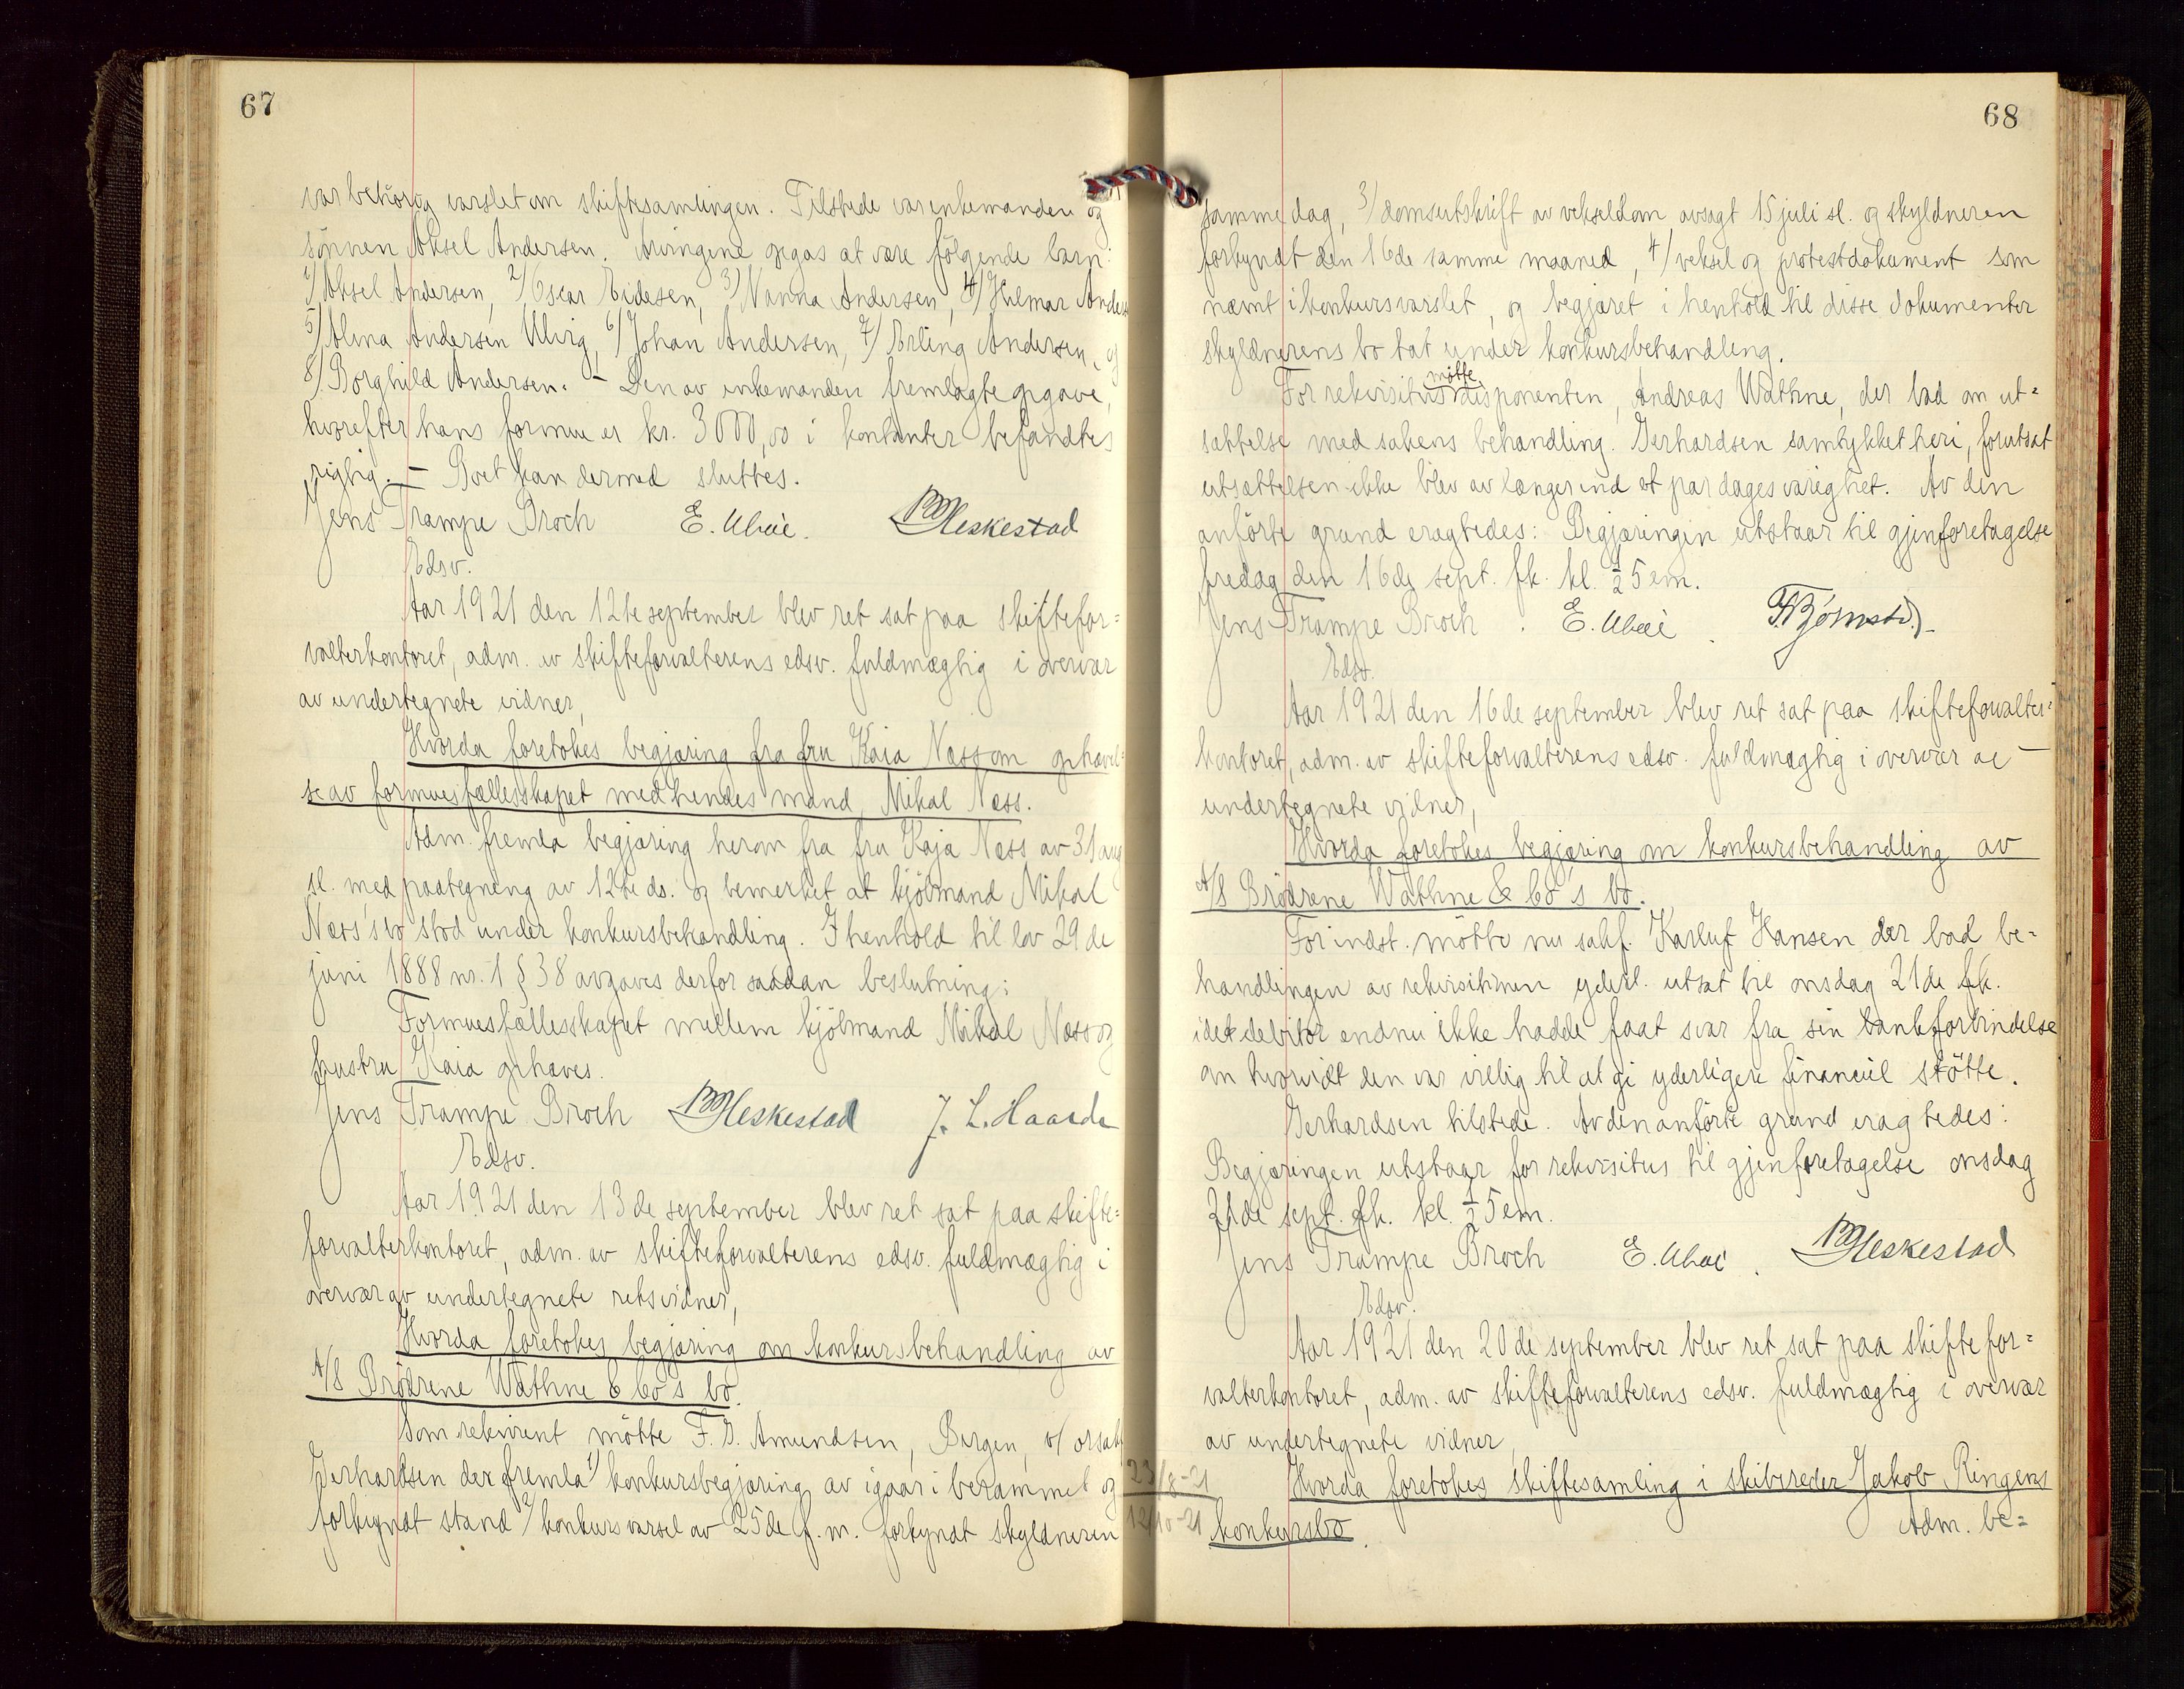 67
var behørig varslet om skiftesamlingen. Tilstede var enkemanden og
sønnen Aksel Andersen. Arvingene opgas at være følgende barn:
1/ Aksel Andersen, 2/ Oscar Eidesen, 3) Nanna Andersen, 4/ Hilmar Anders
5/ Alma Andersen Ulvig, 6/ Johan Andersen, 7/ Erling Andersen, og
8/ Borghild Andersen. – Den av enkemanden fremlagte opgave,
hvorefter hans formue er kr. 3000,00 i kontanter befandtes
rigtig. – Boet kan dermed sluttes.
Jens Trampe Broch E. Ubøe. BMHeskestad
Edsv.
Aar 1921 den 12te september blev ret sat paa skiftefor=
valterkontoret, adm. av skifteforvalterens edsv. fuldmægtig i overvær
av undertegnete vidner,
Hvorda foretokes begjæring fra fru Kaia Næss om ophævel=
se av formuesfællesskapet med hendes mand, Mikal Næss.
Adm. fremla begjæring herom fra fru Kaja Næss av 31 aug
sl. med paategning av 12te ds. og bemerket at kjøbmand Mikal
Næss's bo stod under konkursbehandling. I henhold til lov 29 de
juni 1888 nr. 1 § 38 avgaves derfor saadan beslutning:
Formuesfællesskapet mellem kjøbmand Mikal Næss og
hustru Kaia ophæves.
Jens Trampe Broch BMHeskestad J. L. Haarde
Edsv.
Aar 1921 den 13de september blev ret sat paa skifte=
forvalterkontoret, adm. av skifteforvalterens edsv. fuldmægtig i
overvær av undertegnete retsvidner,
Hvorda foretokes begjæring om konkursbehandling av
A/S Brødrene Wathne & Co's bo.
Som rekvirent møtte F. D. Amundsen, Bergen, v/ orsakf
Gerhardsen der fremla 1/ konkursbegjæring av igaar i berammet og
forkyndt stand 2/ konkursvarsel av 25de f. m. forkyndt skyldneren
68
samme dag, 3/ domsutskrift av vekseldom avsagt 15 juli sl. og skyldneren
forkyndt den 16de samme maaned, 4/ veksel og protestdokument som
nævnt i konkursvarslet, og begjæret i henhold til disse dokumenter
skyldnerens bo tat under konkursbehandling.
For rekvisitus møtte disponenten, Andreas Wathne, der bad om ut=
sættelse med sakens behandling. Gerhardsen samtykket heri, forutsat
utsættelsen ikke blev av længer end et par dages varighet. Av den
anførte grund eragtedes: Begjæringen utstaar til gjenforetagelse
fredag den 16de sept. fk. kl. ½5 em.
Jens Trampe Broch. E. Ubøe. T. Bjørnstd.
Edsv.
Aar 1921 den 16de september blev ret sat paa skifteforvalter=
kontoret, adm. av skifteforvalterens edsv. fuldmægtig i overvær av –
undertegnete vidner,
Hvorda foretokes begjæring om konkursbehandling av
A/S Brødrene Wathne & Co's bo.
For indst. møtte nu sakf. Karluf Hansen der bad be=
handlingen av rekvisitionen yderl. utsat til onsdag 21de fk.
idet debitor endnu ikke hadde faat svar fra sin bankforbindelse
om hvorvidt den var villig til at gi yderligere financiel støtte.
Gerhardsen tilstede. Av den anførte grund eragtedes:
Begjæringen utstaar for rekvisitus til gjenforetagelse onsdag
21de sept. fk. kl. ½5 em.
Jens Trampe Broch E. Ubøe. BMHeskestad
Edsv.
Aar 1921 den 20de september blev ret sat paa skiftefor=
valterkontoret, adm. av skifteforvalterens edsv. fuldmægtig i overvær
av undertegnete vidner,
23/8-21
12/10-21
Hvorda foretokes skiftesamling i skibsreder Jakob Ringens
konkursbo. Adm. be=